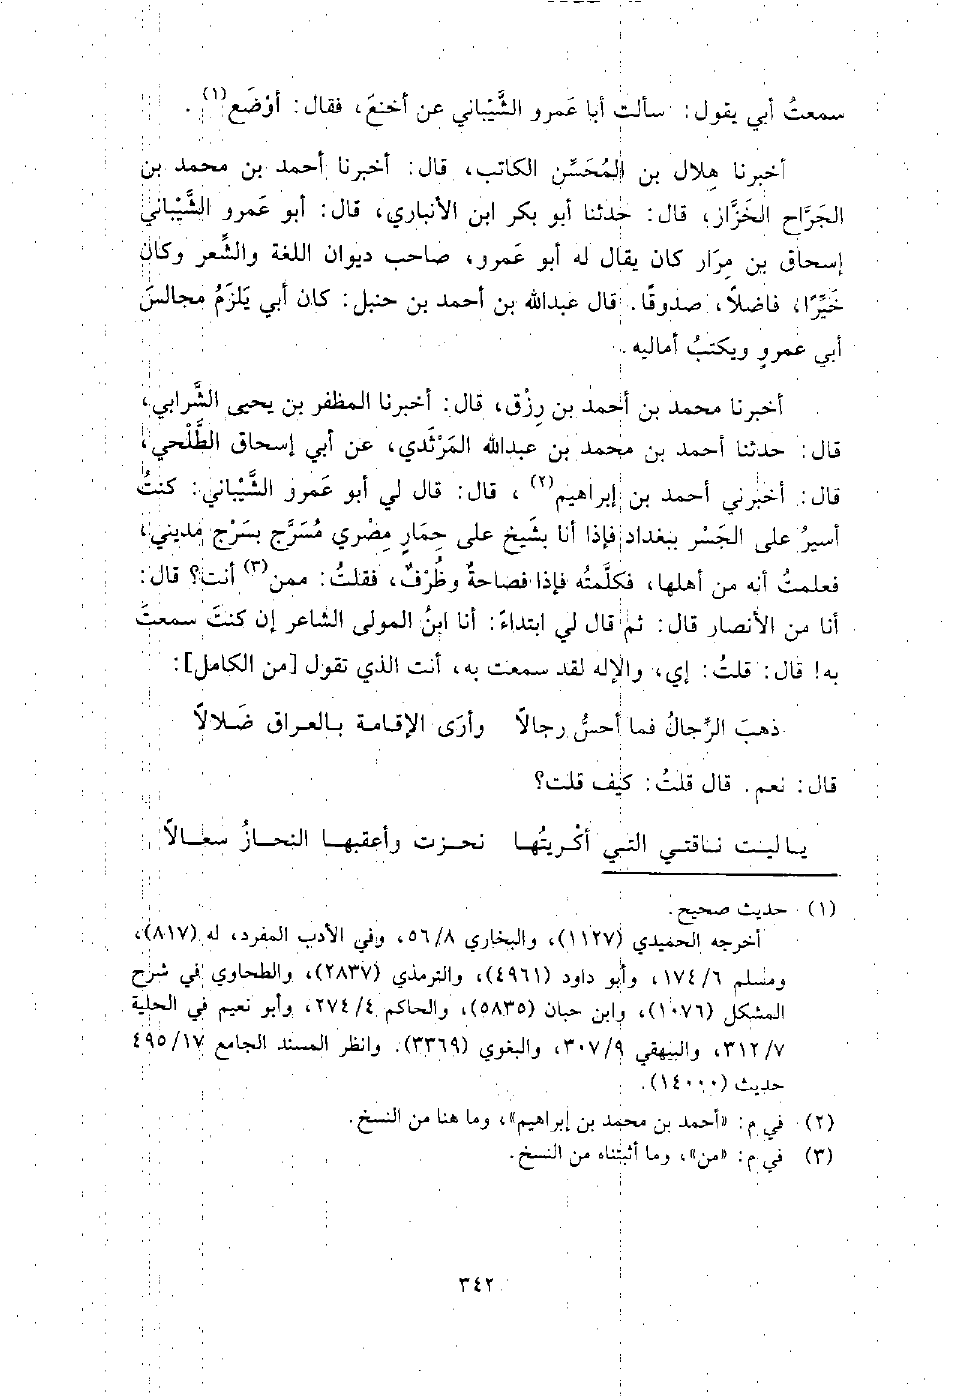 سمعتُ أبي يقول: سألت أبا عَمرو الشَّيْباني عن أخنعَ، فقال: أوْضَع(١).
أخبرنا هِلال بن المُحَسِّن الكاتب، قال: أخبرنا أحمد بن محمد بن
الجَرَّاح الخَزَّاز، قال: حدثنا أبو بكر ابن الأنباري، قال: أبو عَمرو الشَّيْباني
إسحاق بن مِرَار كان يقال له أبو عمرو، صاحب ديوان اللغة والشِّعر وكان
خَيِّرًا، فاضلاً، صدوقًا. قال عبدالله بن أحمد بن حنبل: كان أبي يَلزَمُ مجالسَ
أبي عمرٍو ويكتبُ أماليه.
أخبرنا محمد بن أحمد بن رِزق، قال: أخبرنا المظفر بن يحيى الشَّرابي،
قال: حدثنا أحمد بن محمد بن عبدالله المَرْثَدي، عن أبي إسحاق الطَّلْحي،
قال: أخبرني أحمد بن إبراهيم(٢)، قال: قال لي أبو عَمرو الشَّيْباني: كنتُ
أسيرُ على الجَسْر ببغداد فإذا أنا بشَيخ على حِمارٍ مِصْري مُسَرَّج بسَرْج مديني،
فعلمتُ أنه من أهلها، فكلَّمته فإذا فصاحةٌ وظُرْفٌ، فقلتُ: ممن(٣) أنت؟ قال:
أنا من الأنصار قال: ثم قال لي ابتداءً: أنا ابنُ المولى الشاعر إن كنتَ سمعتَ
به! قال: قلتُ: إي، والإله لقد سمعت به، أنت الذي تقول [من الكامل]:
ذهبَ الرِّجالُ فما أحسُّ رجالاً وأرَى الإقامة بالعراق ضَلالاً
قال: نعم. قال قلتُ: كيف قلت؟
ياليت ناقتي التي أكْريتُها نحزت وأعقبها النحازُ سعالاً
(١) حديث صحيح.
أخرجه الحميدي (١١٢٧)، والبخاري ٥٦/٨، وفي الأدب المفرد، له (٨١٧)،
ومسلم ١٧٤/٦، وأبو داود (٤٩٦١)، والترمذي (٢٨٣٧)، والطحاوي في شرح
المشكل (١٠٧٦)، وابن حبان (٥٨٣٥)، والحاكم ٢٧٤/٤، وأبو نعيم في الحلية
٣١٢/٧، والبيهقي ٣٠٧/٩، والبغوي (٣٣٦٩). وانظر المسند الجامع ٤٩٥/١٧
حديث (١٤٠٠٠).
(٢) في م: «أحمد بن محمد بن إبراهيم»، وما هنا من النسخ.
(٣) في م: «من»، وما أثبتناه من النسخ.
٣٤٢